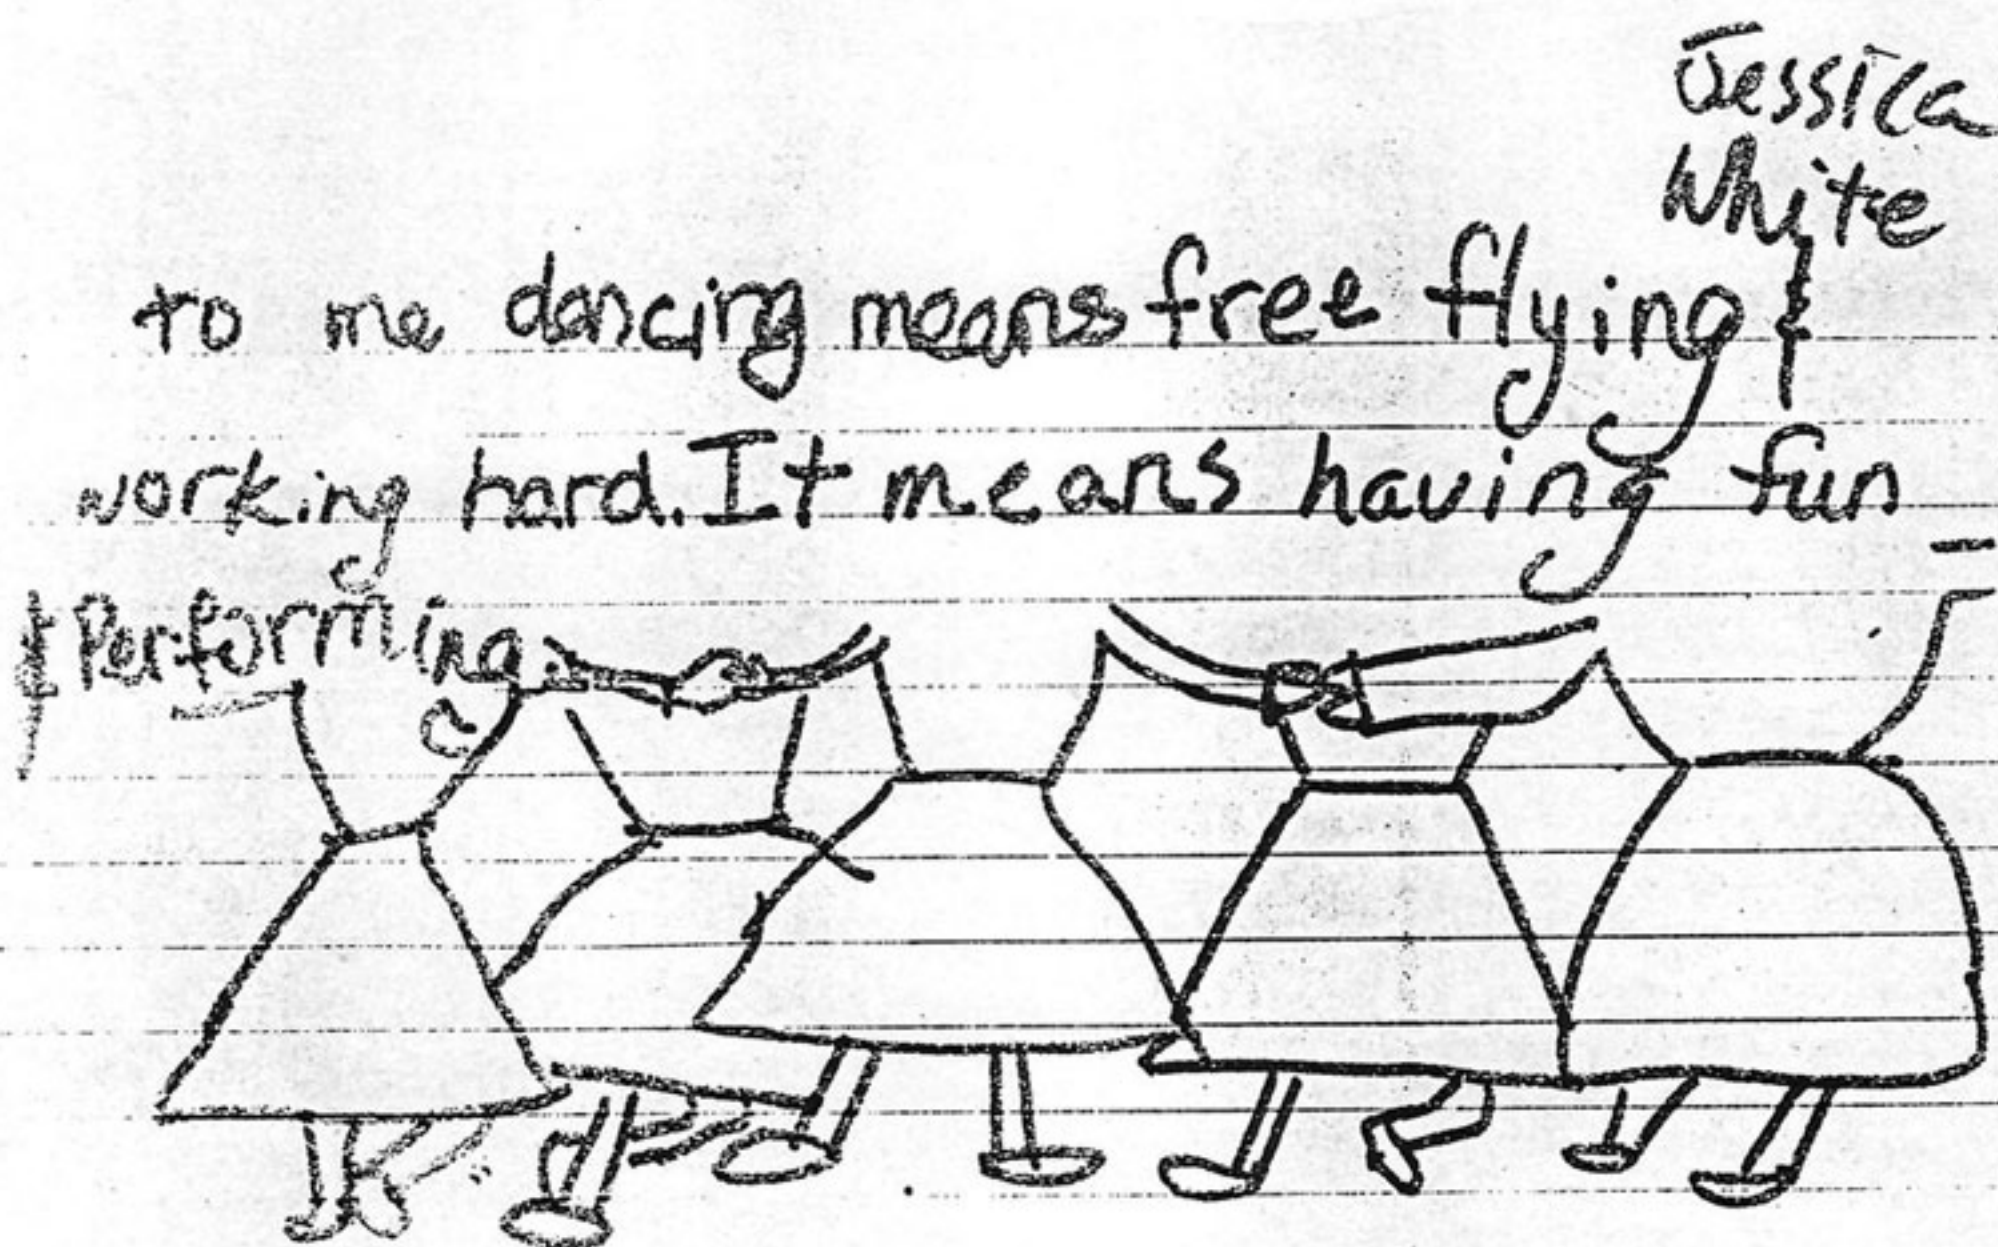 Jessica
White
to me dancing means free flying &
working hard. It means having fun
& Performing.